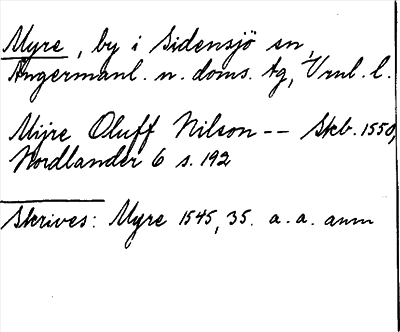 Myre, by i Sidensjö sn,
Ångermanl. n. doms. tg, Vrnl. l.
Mijre Oluff Nilson -- Skb. 1550,
Nordlander 6 s. 192
Skrives: Myre 1545, 35. a. a. anm